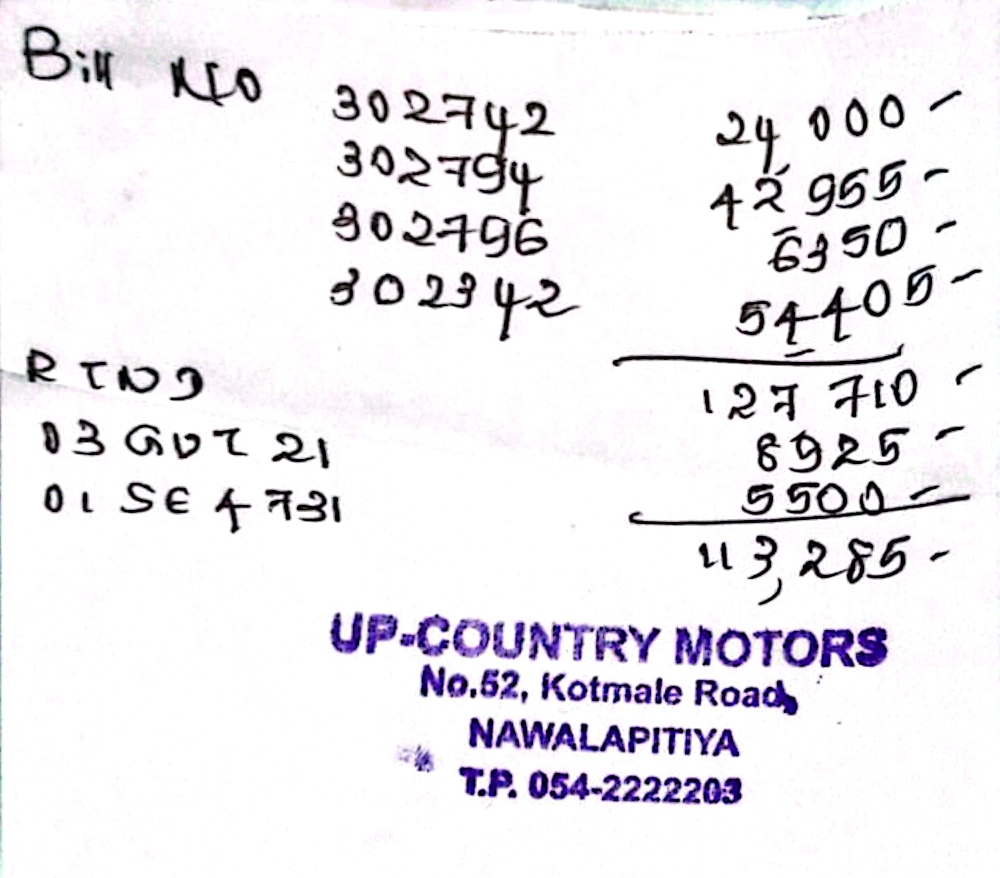 Bill NO
302742 24 000-
302794 42 955-
302796 6350-
302342 54405-
127 710-
RTNO
03 GUT 21 8925-
01 SE 4731 5500-
113,285-
UP-COUNTRY MOTORS
No.52, Kotmale Road,
NAWALAPITIYA
T.P. 054-2222203